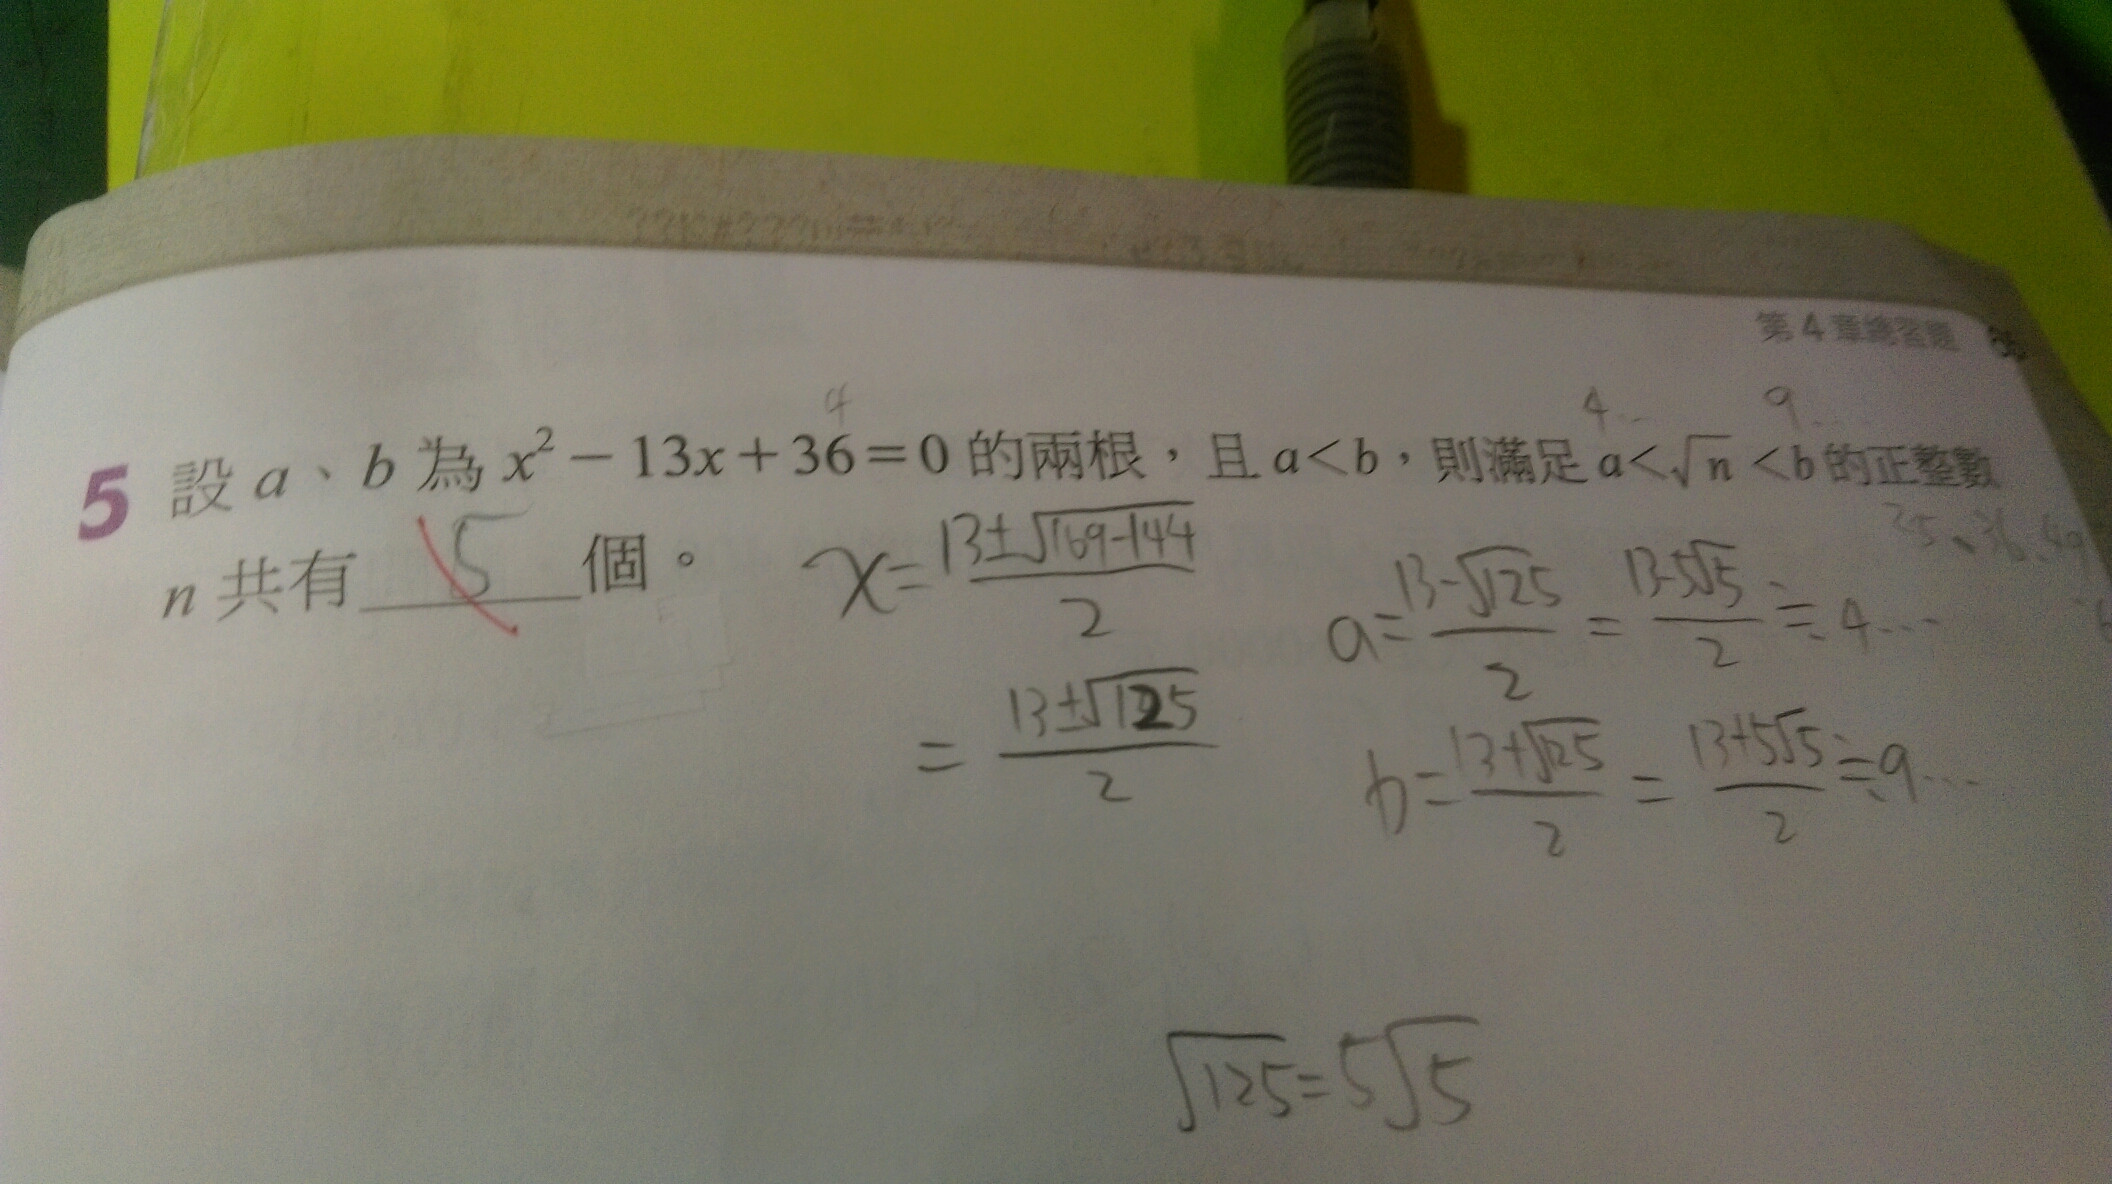 第4章總習題
4
4...
9...
5 設 a、b 為 x² − 13x + 36 = 0 的兩根，且 a < b，則滿足 a < √n < b 的正整數
n 共有 5 個。
x = (13 ± √(169-144)) / 2
= (13 ± √125) / 2
a = (13 - √125) / 2 = (13 - 5√5) / 2 ≒ 4...
b = (13 + √125) / 2 = (13 + 5√5) / 2 ≒ 9...
√125 = 5√5